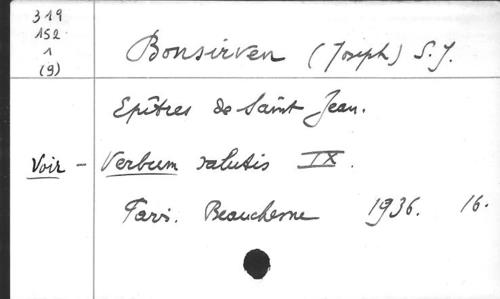 319
152
1
(9)
Bonsirven (Joseph) S.J.
Epîtres de Saint Jean.
Voir - Verbum salutis IX.
Paris. Beauchesne 1936. 16.